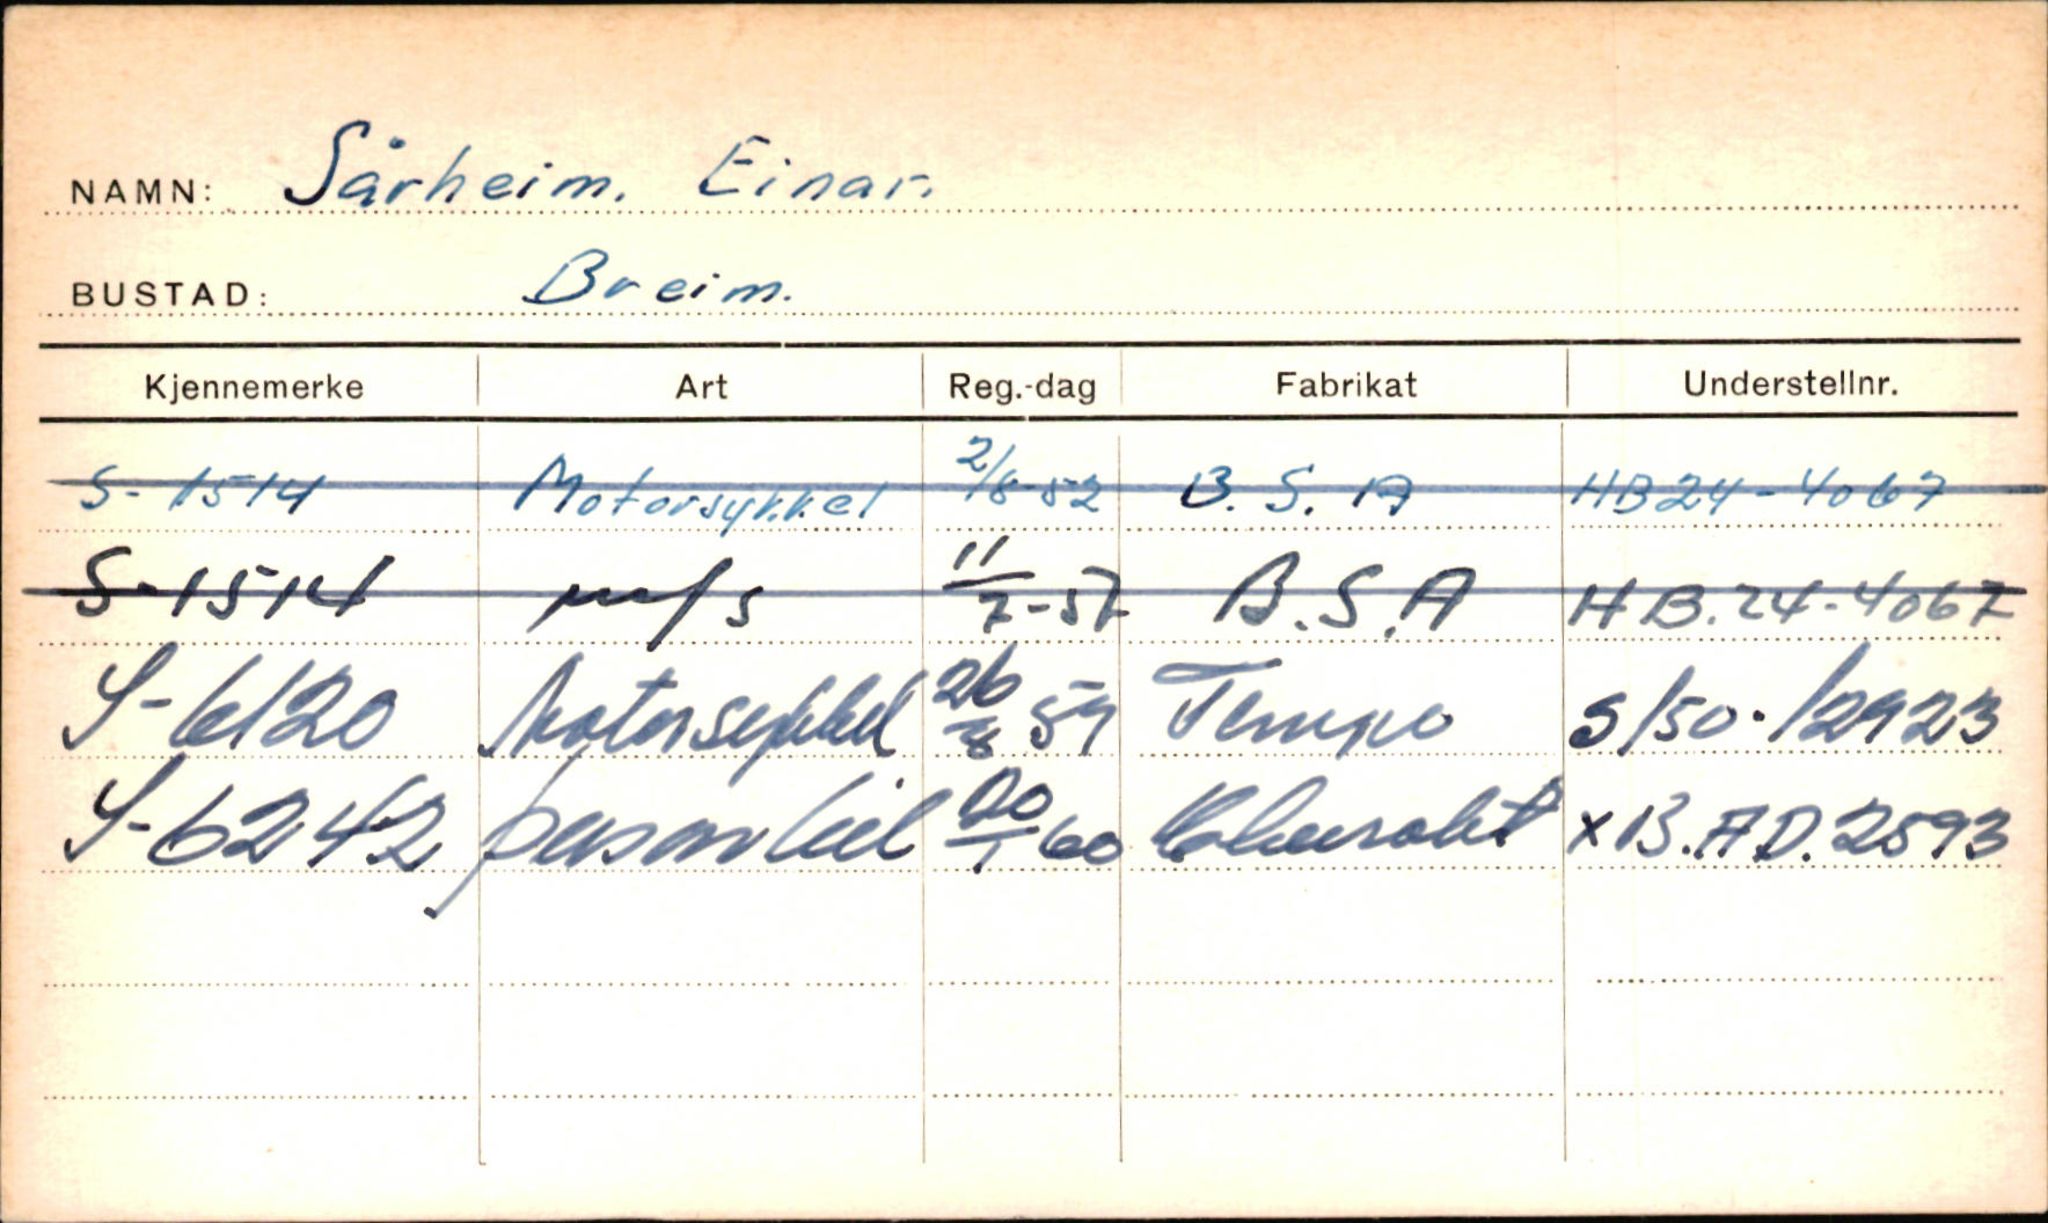 NAMN: Sårheim. Einar.
BUSTAD: Breim.
Kjennemerke Art Reg.-dag Fabrikat Understellnr.
S- 1514 Motorsykkel 2/8-52 B. S. A HB24-4067
S-1514 m/s 11/7-57 B.S.A HB.24-4067
S-6120 Motorsykkel 26/8 59 Tempo S/50-12923
S-6242 personbil /1 60 Chevrolet XB.AD.2593